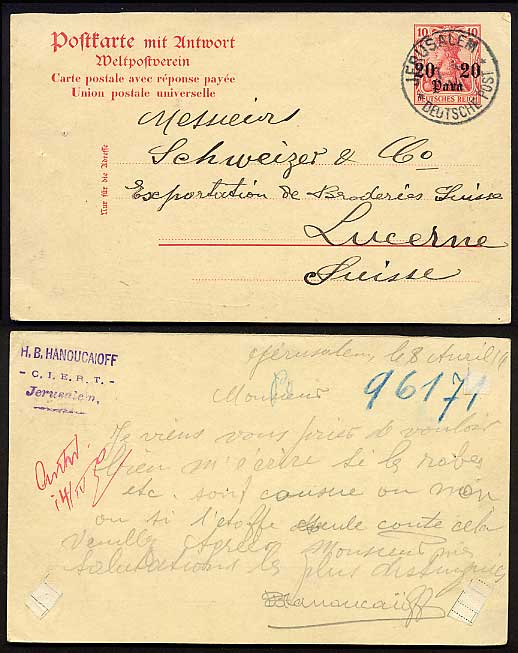 Postkarte mit Antwort
Weltpostverein
Carte postale avec réponse payée
Union postale universelle
10 10
20 20
Para
DEUTSCHES REICH
JERUSALEM
* DEUTSCHE POST *
Nur für die Adresse
Messieurs
Schweizer & Co
Exportation de Broderies Suisse
Lucerne
Suisse
H. B. HANOUCAIOFF
- C. I. E. R. T. -
Jerusalem,
Jérusalem, le 8 Avril
Monsieur
96171
Je viens vous prier de vouloir
bien m'écrire si la robe
etc. sont cousue ou non
ou si l'étoffe seule coute cela
Veuillez Agréer Monsieur mes
salutations les plus distinguées
Hanoucaïoff